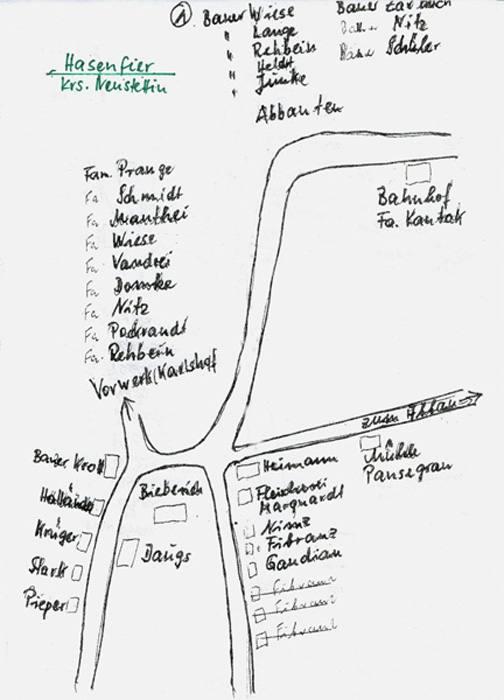 ① Bauer Wiese
" Lange
" Rehbein
" Heldt
" Junke
Abbauten
Bauer
Nitz
Schüler
Hasenfier
Krs. Neustettin
Fam. Prange
Fa Schmidt
Fa Manthei
Fa Wiese
Fa Vandrei
Fa Dommke
Fa Nitz
Fa Podrandt
Fa. Rehbein
Vorwerk/Karlshof
Bahnhof
Fa. Kantak
zum Abbau
Mühle
Pansegrau
Bauer Kroll
Holländer
Krüger
Stark
Pieper
Bieberich
Daugs
Heimann
Fleischerei
Marquardt
Nimz
Fibranz
Gaudian